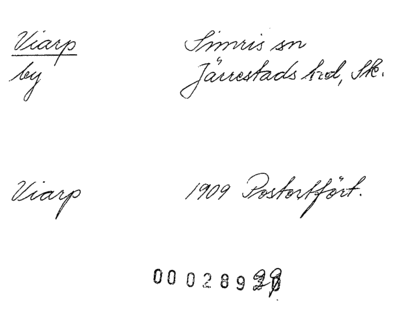 Viarp Simris sn
by Järrestads hrd, Sk.
Viarp 1909 Postortfört.